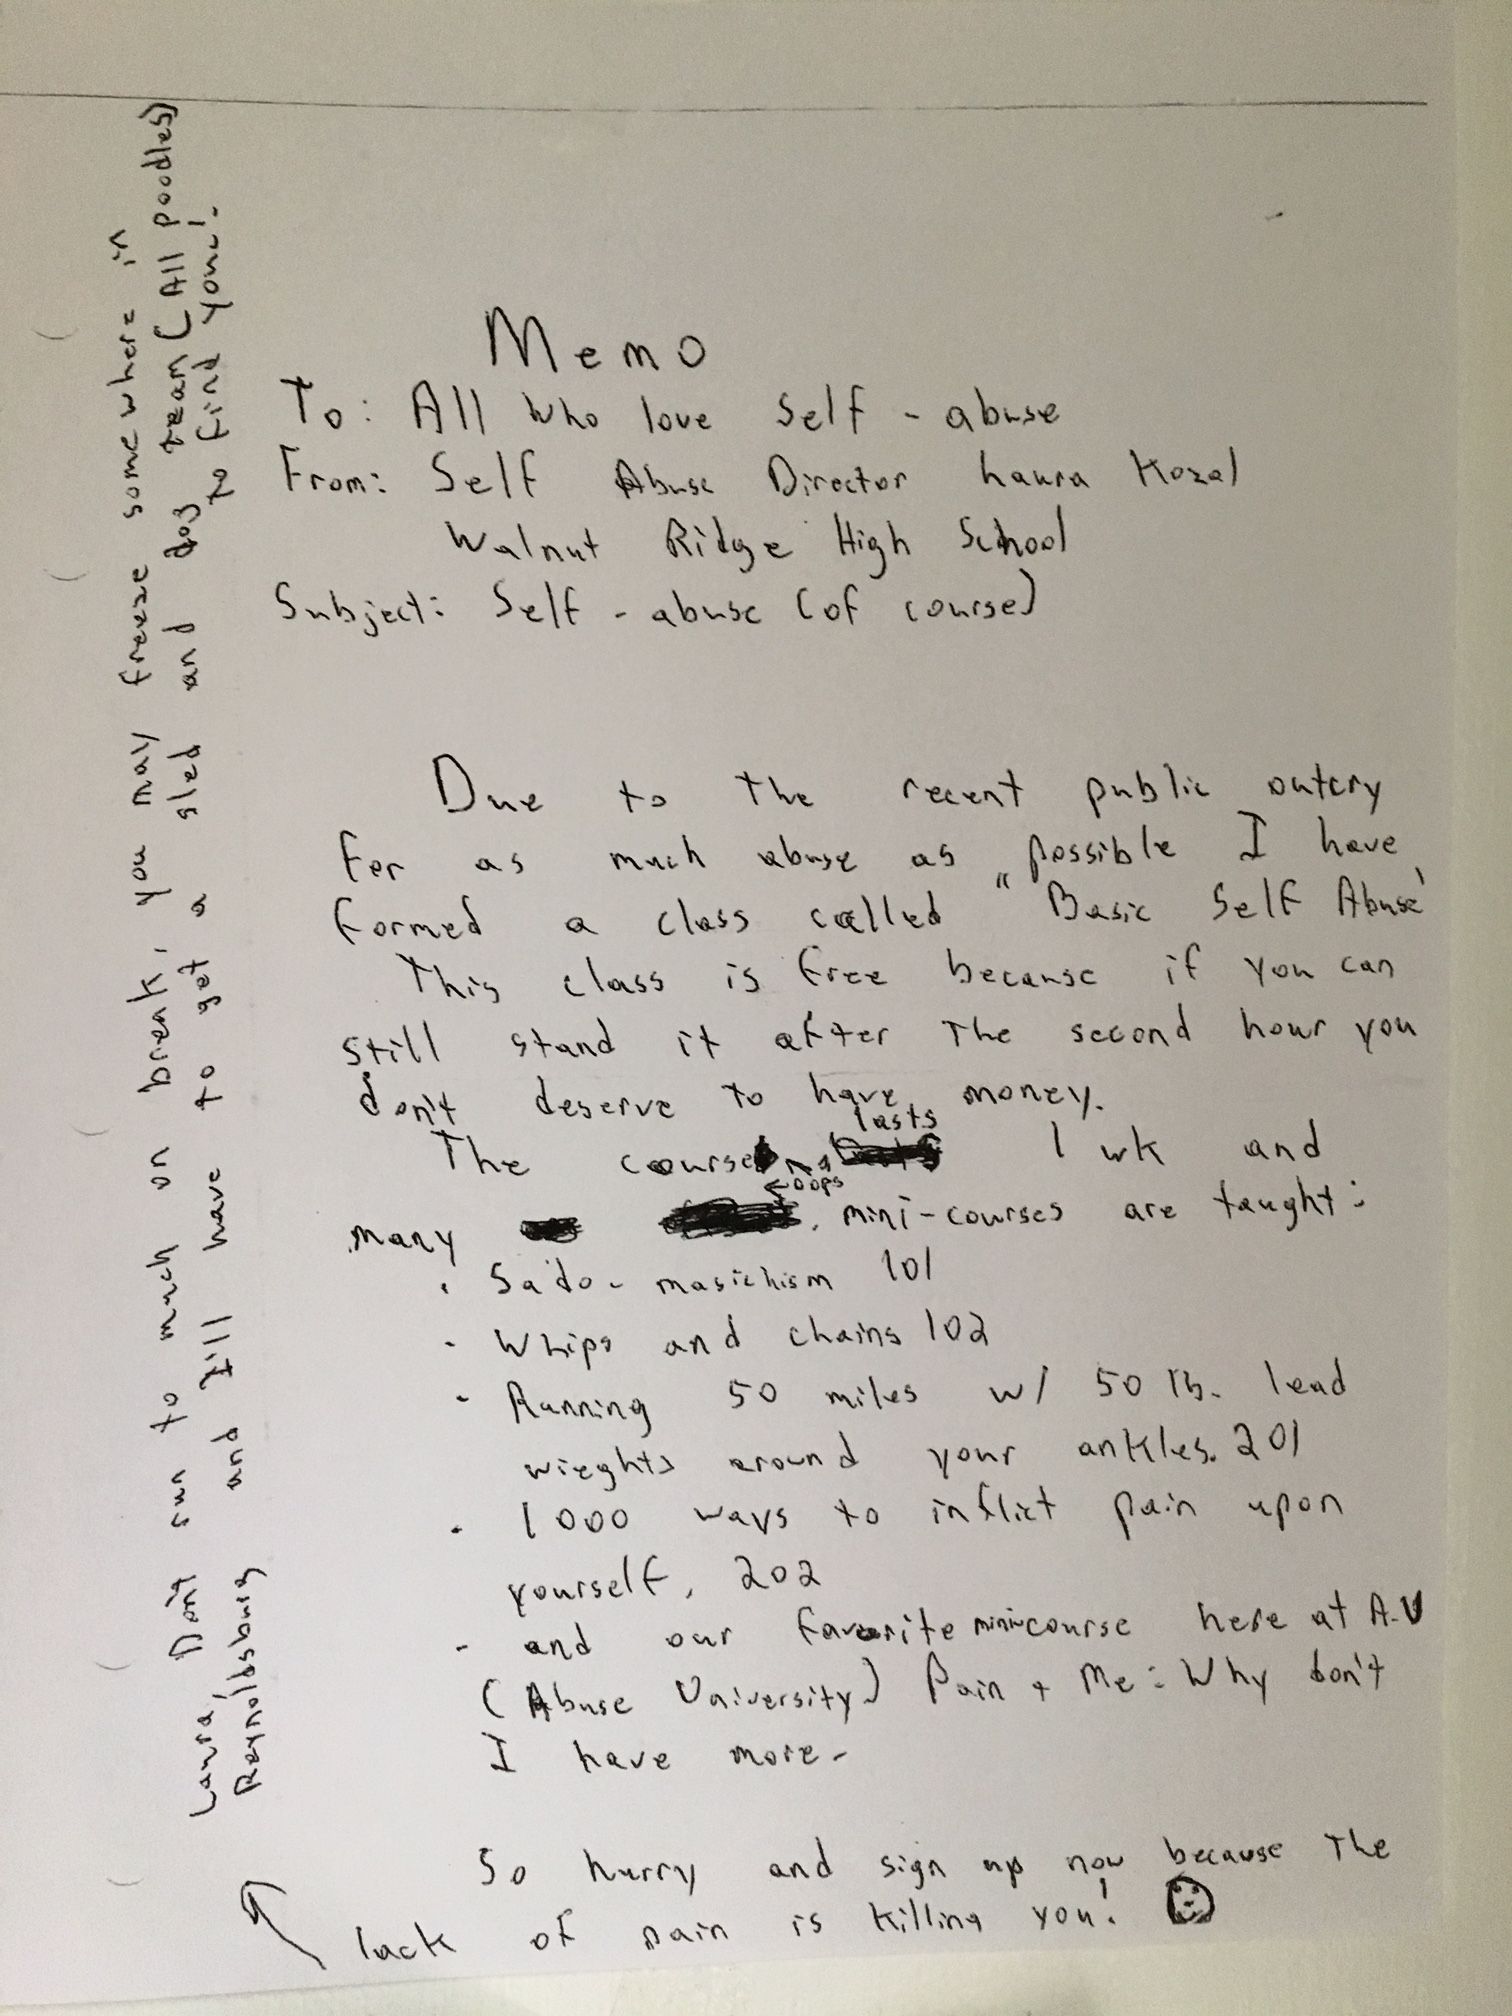 Memo
To: All who love self-abuse
From: Self Abuse Director Laura Kozal
Walnut Ridge High School
Subject: Self-abuse (of course)
Due to the recent public outcry
for as much abuse as possible I have
formed a class called "Basic Self Abuse'
This class is free because if you can
still stand it after the second hour you
don't deserve to have money.
lasts
The course 1 wk and
←oops
many mini-courses are taught:
· Sado-masichism 101
· Whips and chains 102
· Running 50 miles w/ 50 lb. lead
wieghts around your ankles. 201
· 1000 ways to inflict pain upon
yourself, 202
- and our favorite mini-course here at A.U
(Abuse University) Pain + Me: Why don't
I have more-
So hurry and sign up now because the
lack of pain is killing you!
Laura, Don't sun to much on break, you may freeze somewhere in
Reynoldsburg and I'll have to get a sled and dog team (All poodles)
to find you!